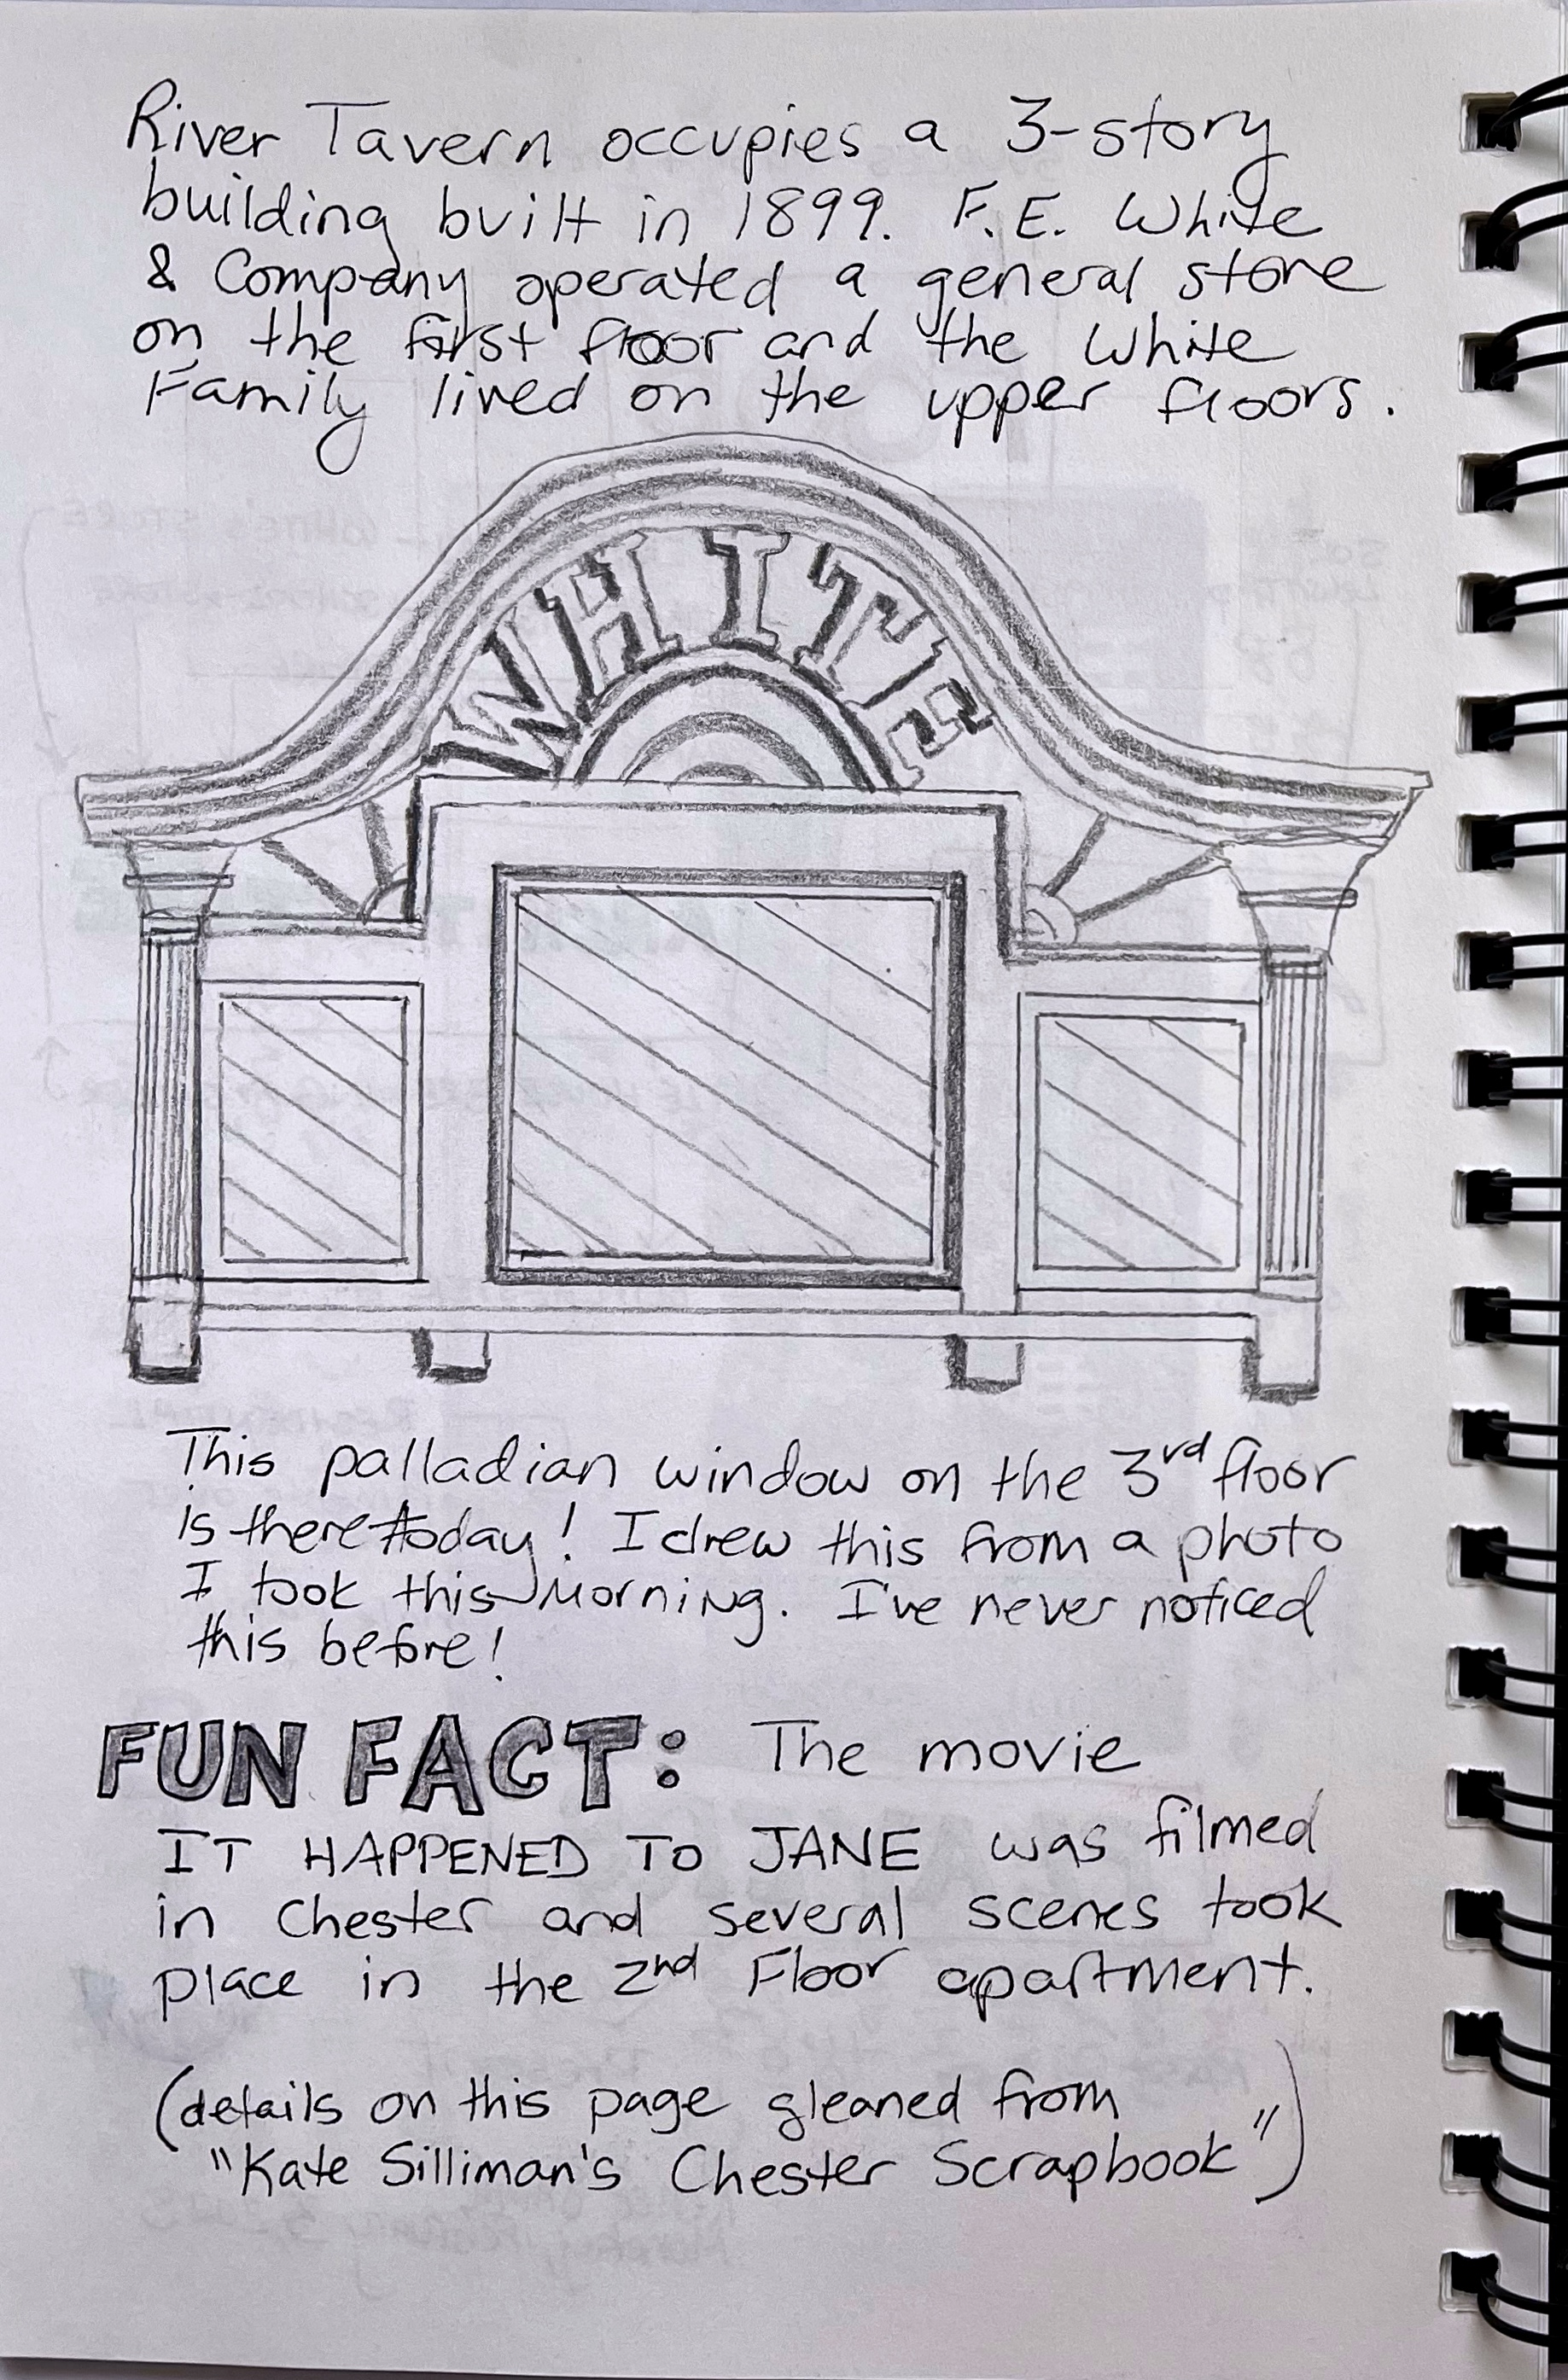 River Tavern occupies a 3-story
building built in 1899. F.E. White
& Company operated a general store
on the first floor and the White
Family lived on the upper floors.
WHITE
This palladian window on the 3rd floor
is there today! I drew this from a photo
I took this Morning. I've never noticed
this before!
FUN FACT: The movie
IT HAPPENED TO JANE was filmed
in Chester and several scenes took
place in the 2nd Floor apartment.
(details on this page gleaned from
"Kate Silliman's Chester Scrapbook")